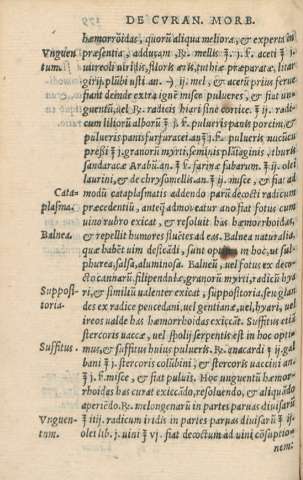 DE CVRAN. MORB.
hæmorrōidas, quorū aliqua meliora, & experta in
Vnguen præsentia, adducam. ℞. mellis ℥. j. ß. aceti ℥ j.
tum. uireoli uiridis, floris æris, tuthiæ præparatæ, litar
girij, plūbi usti an. ij. mel, & acetū prius ferue
fiant deinde extra ignē misce pulueres, & fiat un
guentū, uel ℞. radicis hiari sine cortice. ℥ ij. radi-
cum liliorū alborū ℥ j. ß. pulueris panis porcini, &
pulueris panis furfuracei an ʒ j. ß. pulueris nucūcu
pressi ℥ j. granorū myrti, seminis plātaginis, thuris
sandaracæ Arabū an. ℥ ß. farinæ fabarum. ℥ ij. olei
laurini, & de chrysomellis an. ℥ ij. misce, & fiat ad
Cata- modū cataplasmatis addendo parū decocti radicum
plasma. præcedentiū, anteq̃ admoueatur ano fiat fotus cum
uino rubro exicat, & resoluit has hæmorrhoidas,
Balnea. & repellit humores fluctes ad eas. Balnea naturalia,
quæ habēt uim desiccādi, sunt optima in hoc, ut sul-
phurea, salsa, aluminosa. Balneū, uel fotus ex deco-
cto cannarū, filipendulæ, granorū myrti, radicū hya
Supposi- ri, & similiū ualenter exicat, suppositoria, seu glan
toria. des ex radice pencedani, uel gentianæ, uel, hyari, uel
ireos ualde has hæmorrhoidas exiccāt. Suffitus etiā
stercoris uaccæ, uel spolij serpentis est in hoc opti-
Suffitus. mus, & suffitus huius pulueris. ℞. anacardi ℥ ij. gal
bani ℥ j. stercoris collūbini, & stercoris uaccini an.
℥ j. ß. misce, & fiat puluis. Hoc unguentū hæmor-
rhoidas has curat exiccādo, resoluendo, & aliquādo
aperiēdo. ℞. melongenarū in partes paruas diuisarū
Vnguen- ℥ iij. radicum iridis in partes paruas diuisarū ℥ ij.
tum. olei lib. j. uini ℥ vj. fiat decoctum ad uini cōsuptio-
nem: